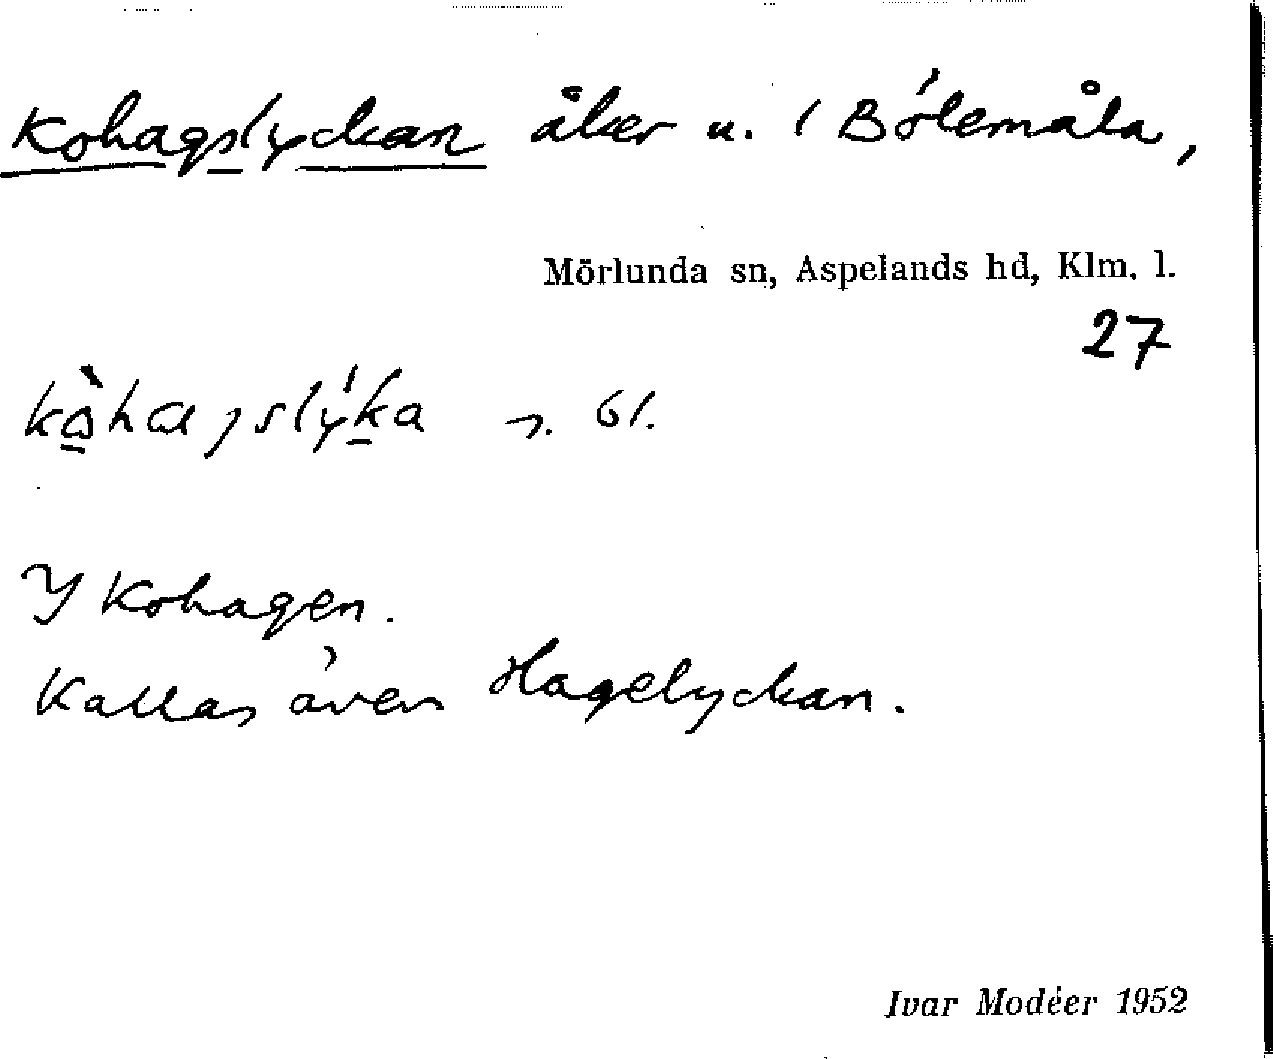 Kohagslyckan åker u. / Bölemåla,
Mörlunda sn, Aspelands hd, Klm. l.
27
61.
Y Kohagen.
Kallas även Hagelyckan.
Ivar Modéer 1952